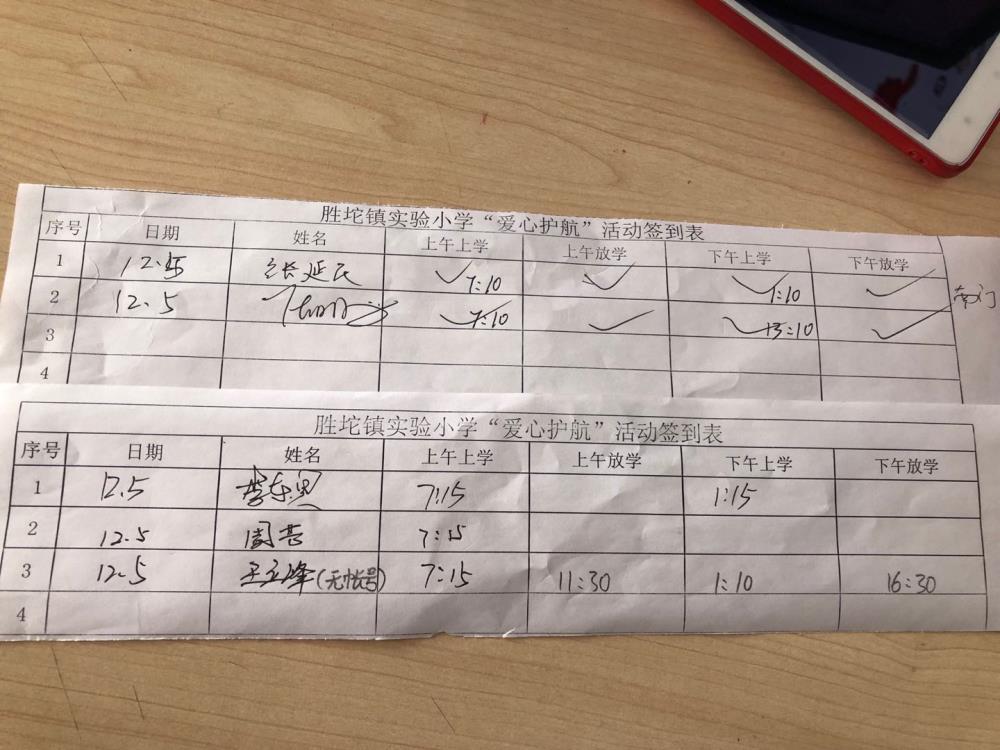 胜坨镇实验小学“爱心护航”活动签到表
序号 日期 姓名 上午上学 上午放学 下午上学 下午放学
1 12.5 张延民 ✓7:10 ✓ ✓1:10 ✓
南门
2 12.5 ✓7:10 ✓ ✓13:10 ✓
3
4
胜坨镇实验小学“爱心护航”活动签到表
序号 日期 姓名 上午上学 上午放学 下午上学 下午放学
1 12.5 7:15 1:15
2 12.5 7:15
3 12.5 王立峰(无帐号) 7:15 11:30 1:10 16:30
4